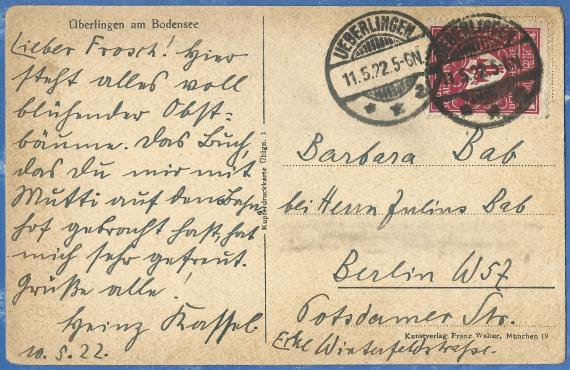 Überlingen am Bodensee
Lieber Frosch! Hier
steht alles voll
blühender Obst-
bäume. Das Buch,
das du mir mit
Mutti auf den Bahn-
hof gebracht hast, hat
mich sehr gefreut.
Grüße alle!
Heinz Kassel
10. 5. 22.
Kupferdruckkarte Üldgn. 1
UEBERLINGEN
11.5.22.5-6N.
UEBERLINGEN
Barbara Bab
bei Herrn Julius Bab
Berlin W57
Potsdamer Str.
Ecke Winterfeldstraße.
Kunstverlag Franz Walter, München 19